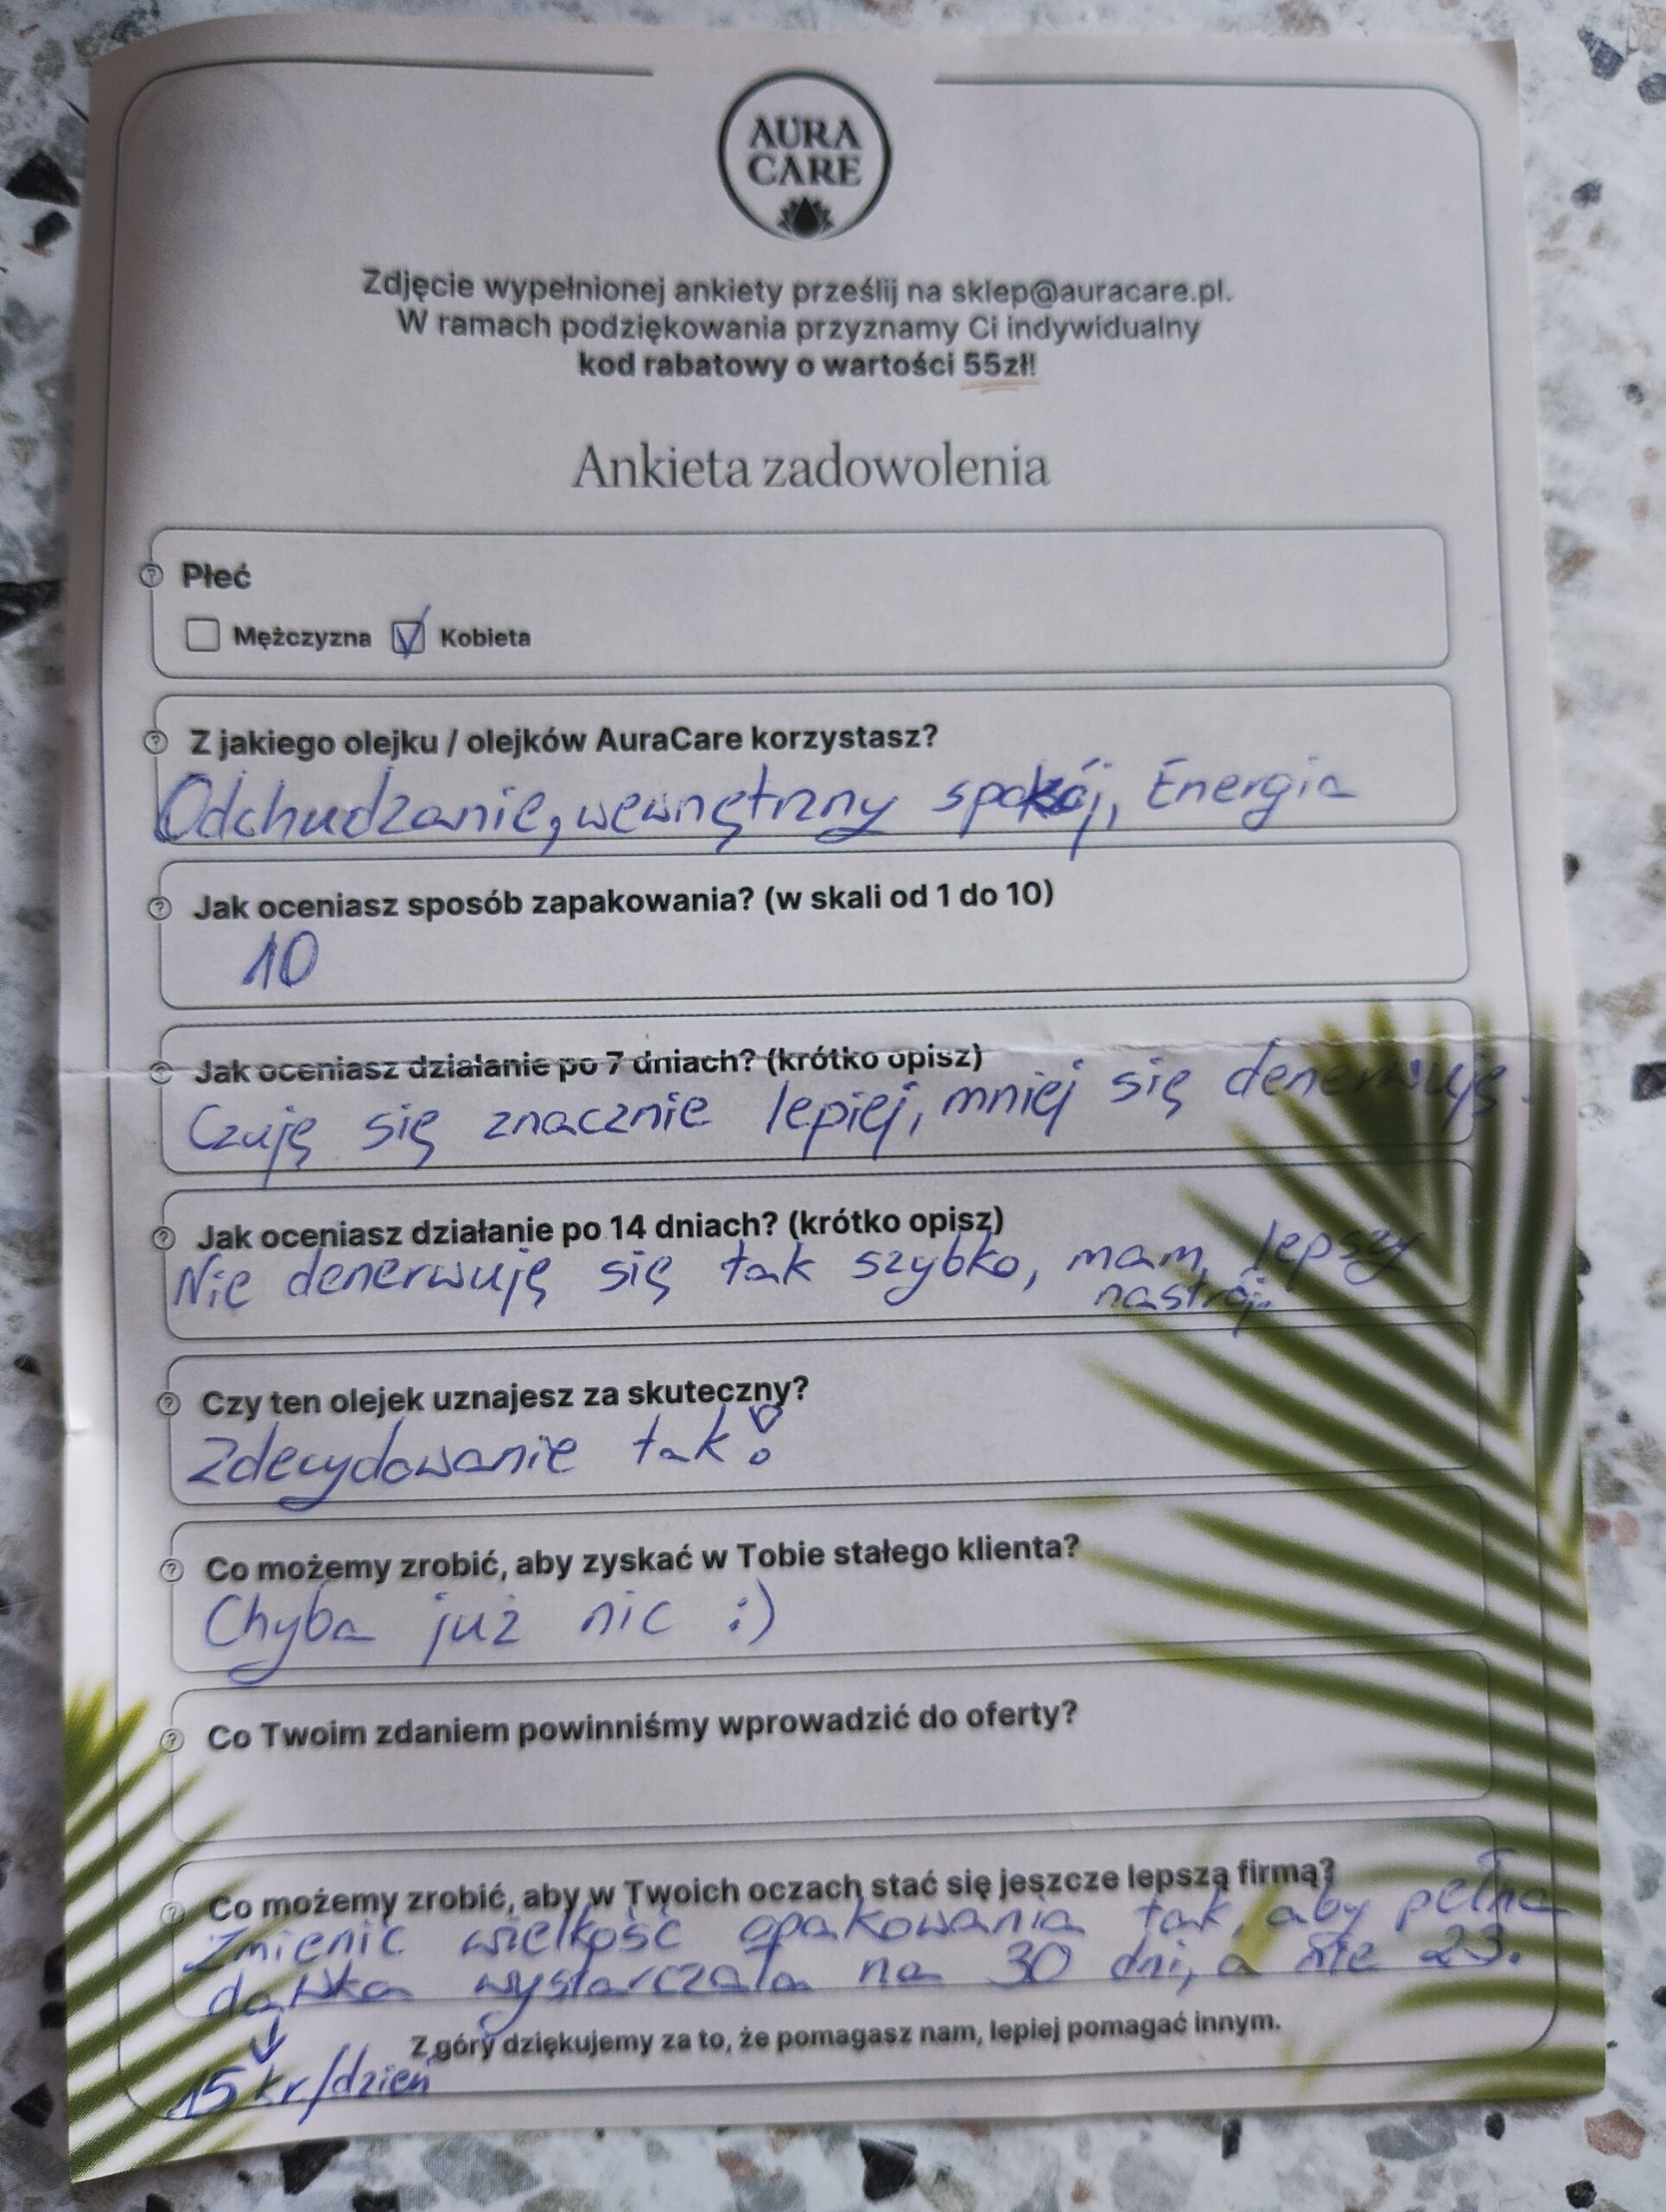 AURA
CARE
Zdjęcie wypełnionej ankiety prześlij na sklep@auracare.pl.
W ramach podziękowania przyznamy Ci indywidualny
kod rabatowy o wartości 55zł!
Ankieta zadowolenia
Płeć
Mężczyzna Kobieta
Z jakiego olejku / olejków AuraCare korzystasz?
Odchudzanie, wewnętrzny spokój, Energia
Jak oceniasz sposób zapakowania? (w skali od 1 do 10)
10
Jak oceniasz działanie po 7 dniach? (krótko opisz)
Czuję się znacznie lepiej, mniej się denerwuję.
Jak oceniasz działanie po 14 dniach? (krótko opisz)
Nie denerwuję się tak szybko, mam lepszy
nastrój.
Czy ten olejek uznajesz za skuteczny?
Zdecydowanie tak!
Co możemy zrobić, aby zyskać w Tobie stałego klienta?
Chyba już nic :)
Co Twoim zdaniem powinniśmy wprowadzić do oferty?
Co możemy zrobić, aby w Twoich oczach stać się jeszcze lepszą firmą?
Zmienić wielkość opakowania tak, aby pełna
dawka wystarczała na 30 dni, a nie 23.
Z góry dziękujemy za to, że pomagasz nam, lepiej pomagać innym.
15 kr/dzień